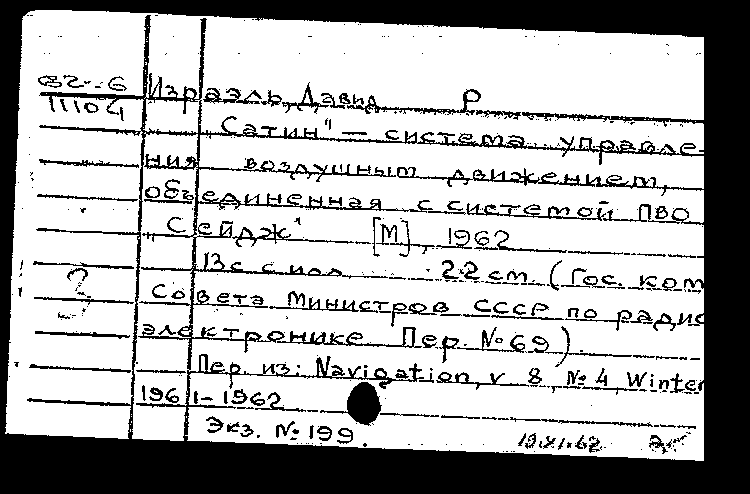 62-6 Израэль, Давид Р
11104
„Сатин" — система управле-
ния воздушным движением,
объединенная с системой ПВО
„Сейдж" [М], 1962
13с с илл. 22 см. (Гос. ком
Совета Министров СССР по радио
электронике Пер. №69)
З
Пер. из: Navigation, v 8, №4, Winter
1961-1962
Экз. №199.
19.XI.62